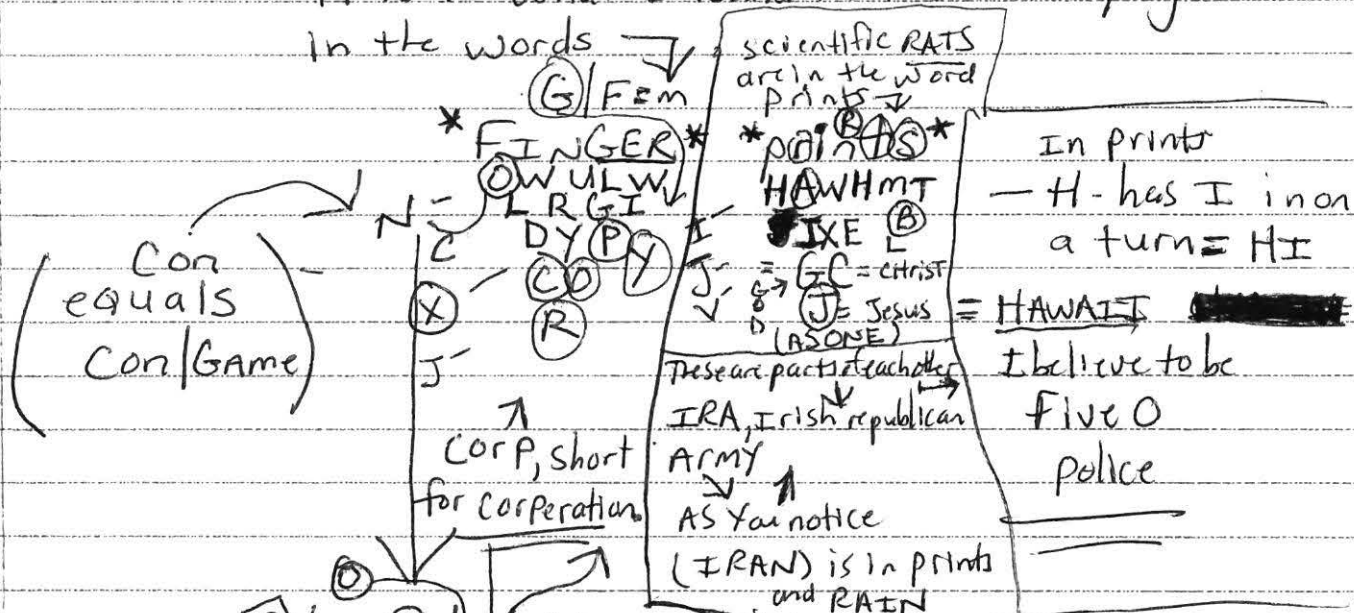 in the words
G/F=m
* FINGER *
OWULW
LRGI
DYP Y
CO
R
N-
C
X
J-
(Con
equals
Con/GAME)
Corp, short
for Corperation
O
scientific RATS
are in the word
prints
R
* prints *
HAWHMT
I- IXE L B
J- = GC = CHrist
GOD
J = Jesus
(AS ONE)
These are parts of each other
IRA, Irish republican
Army
AS You notice
(IRAN) is in prints
and RAIN
In prints
- H-has I in on
a turn = HI
= HAWAII
I believe to be
Five O
police